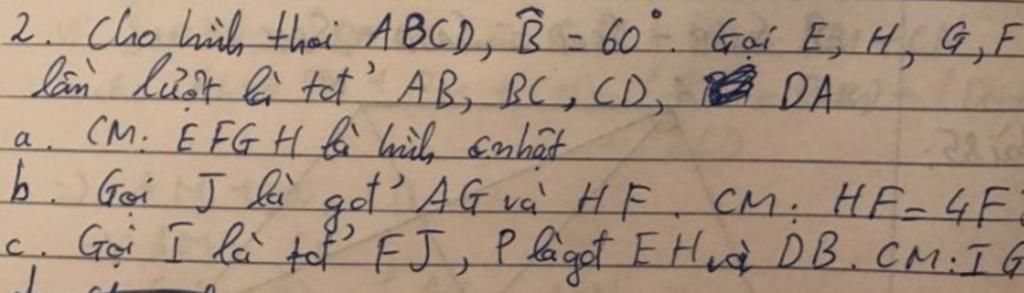 2. Cho hình thoi ABCD, B̂ = 60°. Gọi E, H, G, F
lần lượt là tđ' AB, BC, CD, DA
a. CM: EFGH là hình cnhật
b. Gọi J là gđ' AG và HF. CM: HF = 4F
c. Gọi I là tđ' FJ, P là gđ EH và DB. CM: IG